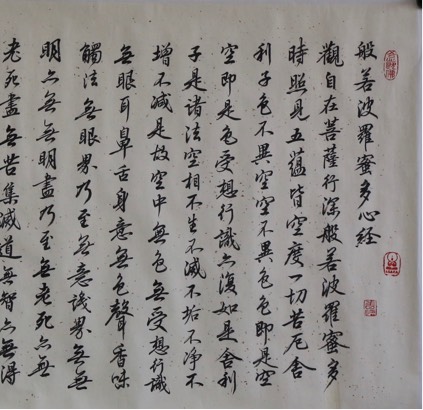 般若波羅蜜多心經
觀自在菩薩行深般若波羅蜜多
時照見五蘊皆空度一切苦厄舍
利子色不異空空不異色色即是空
空即是色受想行識亦復如是舍利
子是諸法空相不生不滅不垢不净不
增不減是故空中無色無受想行識
無眼耳鼻舌身意無色聲香味
觸法無眼界乃至無意識界無無
明亦無無明盡乃至無老死亦無
老死盡無苦集滅道無智亦無得